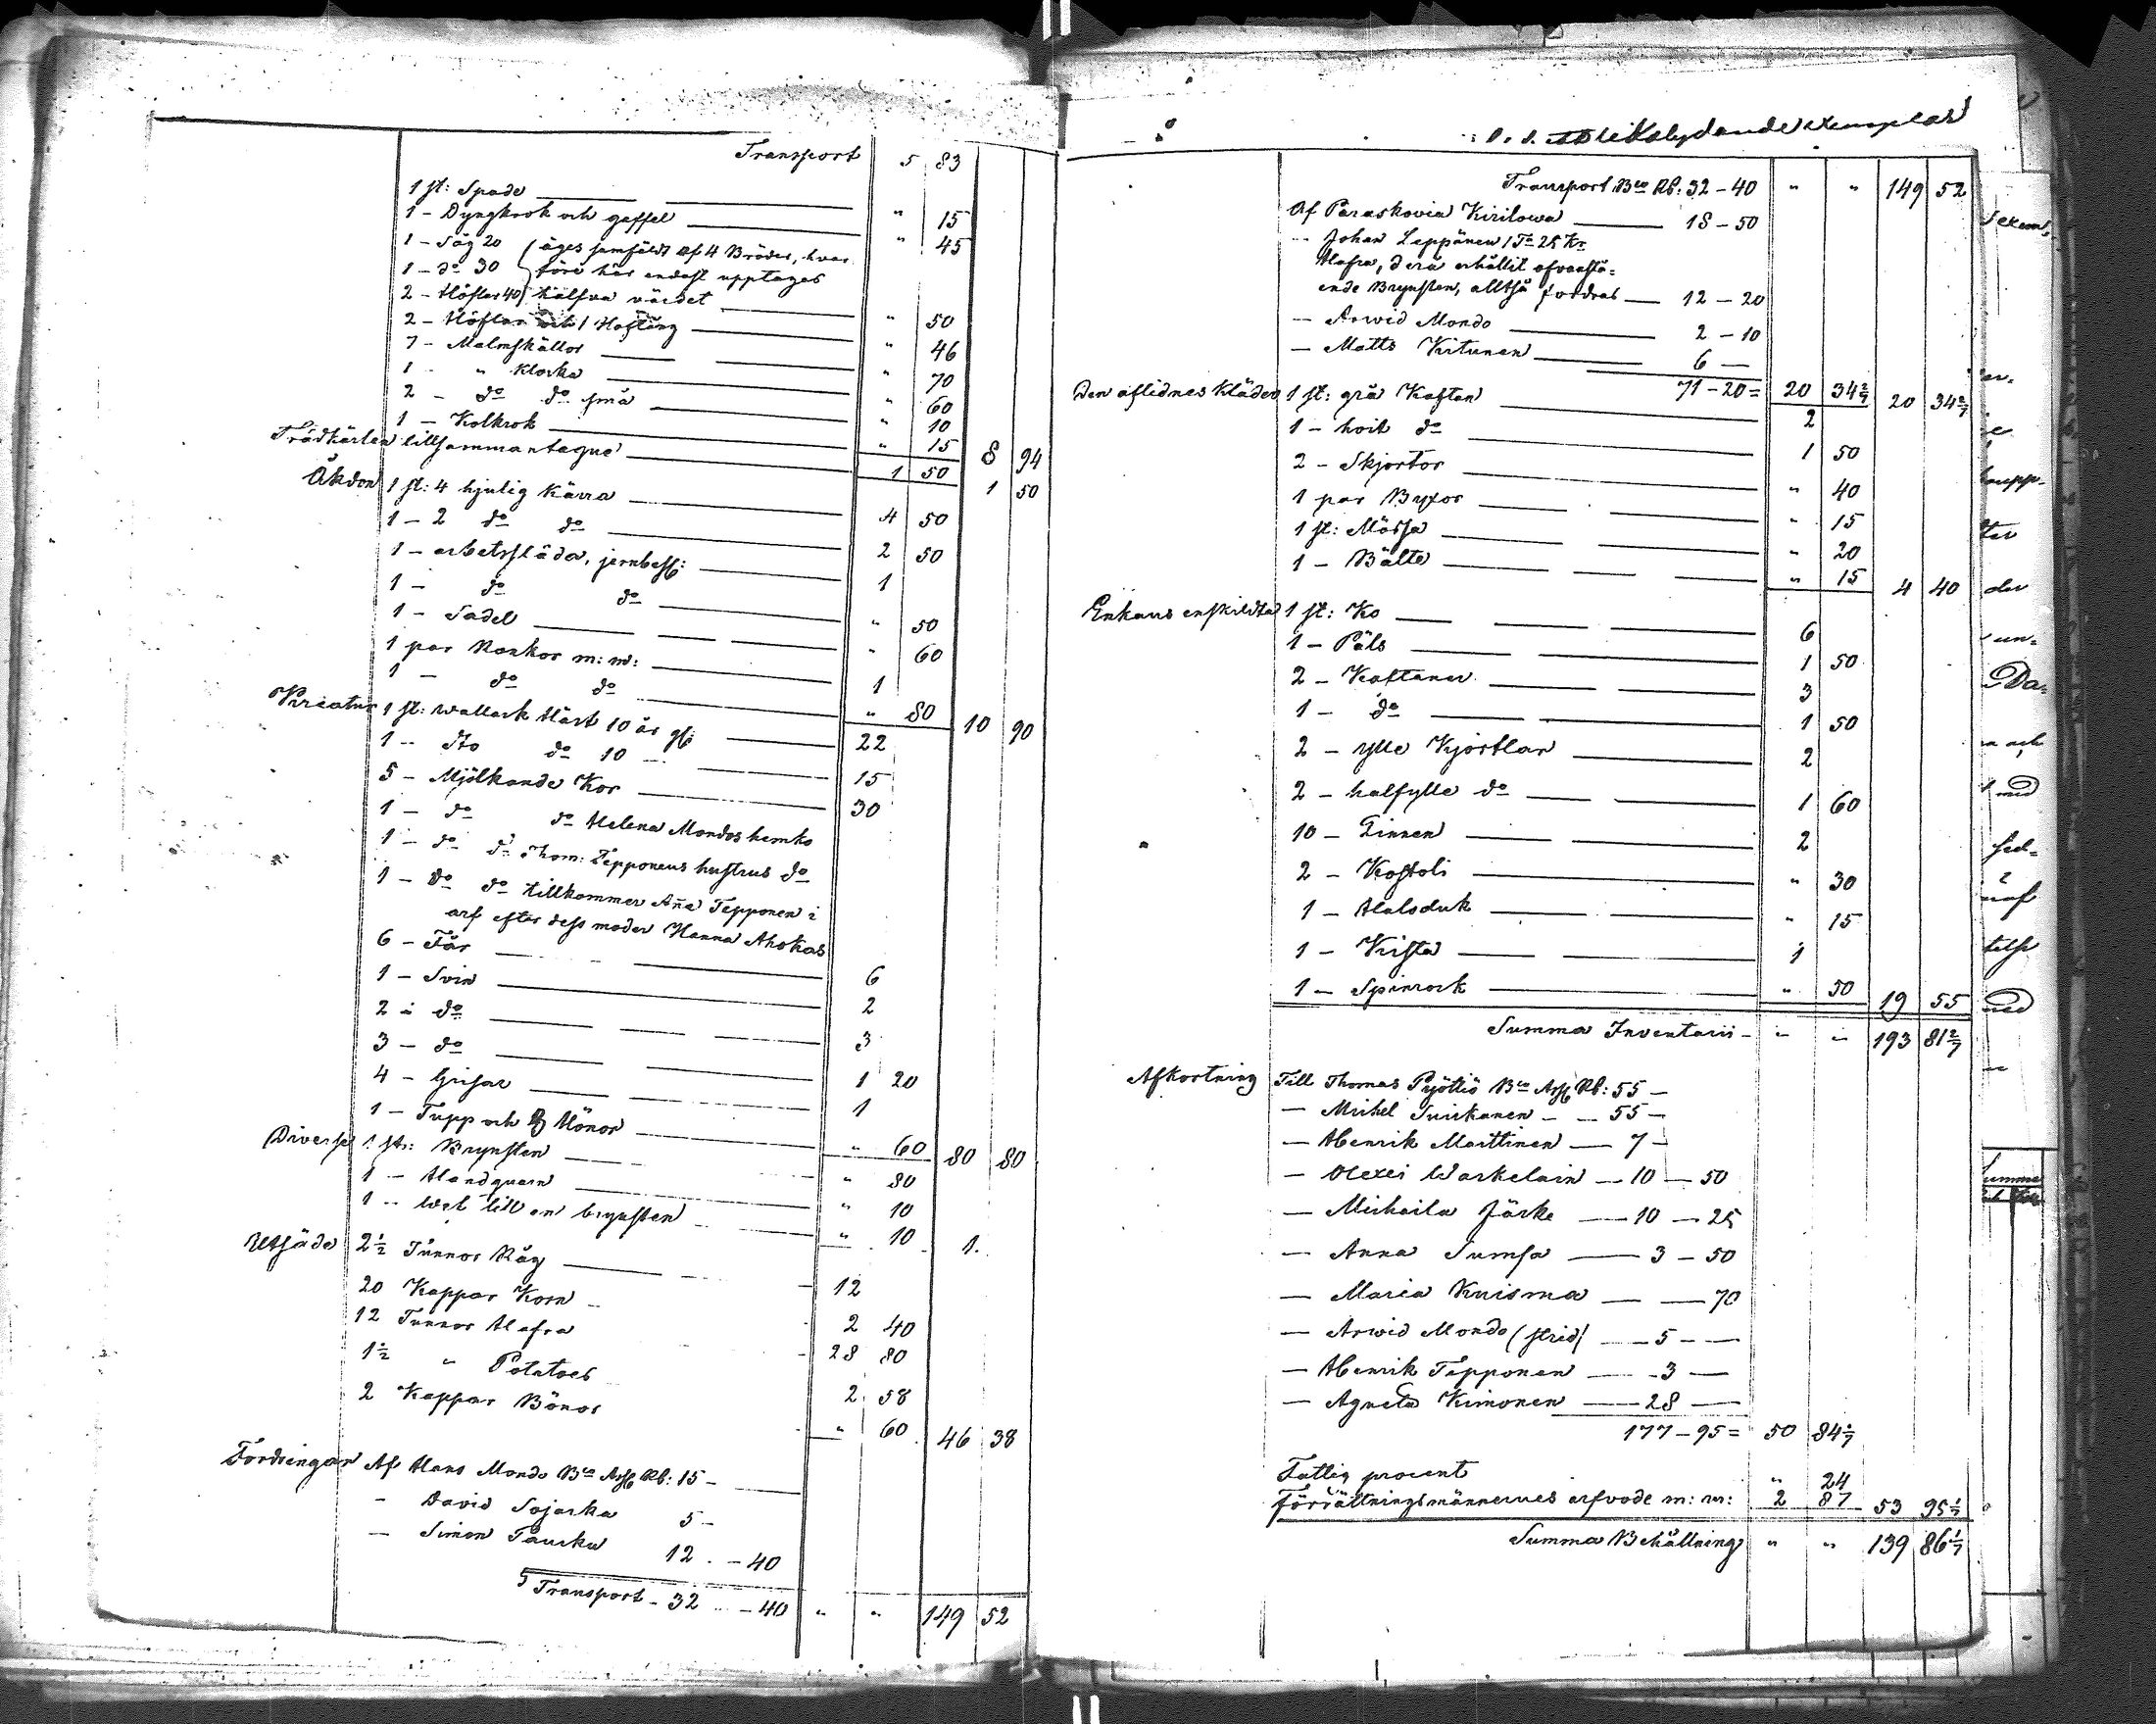 Transport 5 83
1 st: Spade " 15
1 - Dyngkrok och gaffel " 45
1 - Såg 20 äges samfäldt af 4 Bröder, hvar
1 - do 30 före här endast upptages
2 - Höflar 40 halfva värdet " 50
2 - Höflar och 1 Hoftång " 46
7 - Malmskällor " 70
1 - " Klocka " 60
2 - do do små " 10
1 - Kolkrok " 15 8 94
Trädkärlen tillsammantagne 1 50 1 50
Åkdon 1 st: 4 hjulig Kärra 4 50
1 - 2 do do 2 50
1 - arbetssläda, jernbesl: 1
1 - do do " 50
1 - Sadel " 60
1 par Rankor m: m: 1
1 - do do " 80 10 90
Kreatur 1 st: Wallack Häst 10 år gl: 22
1 - dto do 10 15
5 - Mjölkande Kor 30
1 - do do Helena Mondos hemko
1 - do do Thom: Tepponens hustrus do
1 - do do tillkommer Aña Tepponen i
arf efter dess moder Hanna Ahokas
6 - Får 6
1 - Svin 2
2 - do 3
3 - do 1 20
4 - Grisar 1
1 - Tupp och Hönor " 60 80 80
Diverse 1 st: Brynsten " 80
1 - Handquarn " 10
1 - till en brynsten " 10 1.
Utsäde 2½ Tunnor Råg 12
20 Kappar Korn 2 40
12 Tunnor Hafra 28 80
1½ " Potatoes 2 58
2 Kappar Bönor " 60 46 38
Fordringar Af Hans Mondo Bco Ass Rb: 15 -
- David Sojarka 5 -
- Simon Taurku 12 - 40
Transport - 32 - 40 " " 149 52
likalydande exemplar
Transport Bco Rb: 32 - 40 " " 149 52
Af Paraskovia Kirilowa 18 - 50
- Johan Leppänen 1 Ta 25 Kr
Hafra, derå erhållit ofvanstå=
ende Brynsten, alltså fordras 12 - 20
- Arwid Mondo 2 - 10
- Matts Kutunen 6 -
71 - 20 = 20 34 2/7 20 34 2/7
Den aflidnes Kläder 1 st: grå Kaftan 2
1 - hvit do 1 50
2 - Skjortor " 40
1 par Byxor " 15
1 st: Mössa " 20
1 - Bälte " 15 4 40
Enkans enskildta 1 st: Ko 6
1 - Päls 1 50
2 - Kaftaner 3
1 - do 1 50
2 - ylle Kjortlar 2
2 - halfylle do 1 60
10 - Linnen 2
2 - Kostoli " 30
1 - Halsduk " 15
1 - Kista 1
1 - Spinrock " 50 19 55
Summa Inventarii - " " 193 81 2/7
Afkortning Till Thomas Pyöttiö Bco Ass Rb: 55 -
- Michel Suikkanen - - 55 -
- Henrik Marttinen - 7 -
- Olexei Warkelain - 10 - 50
- Michaila Järke - 10 - 25
- Anna Sumsa - 3 - 50
- Maria Kuisma - - 70
- Arwid Mondo (strid) - 5 - -
- Henrik Tepponen - 3 -
- Agneta Kimonen - 28 -
177 - 95 = 50 84 1/7
Fattig procent " 24
Förrättningsmännernes arfvode m: m: 2 87 53 95 1/7
Summa Behållning " " 139 86 1/7